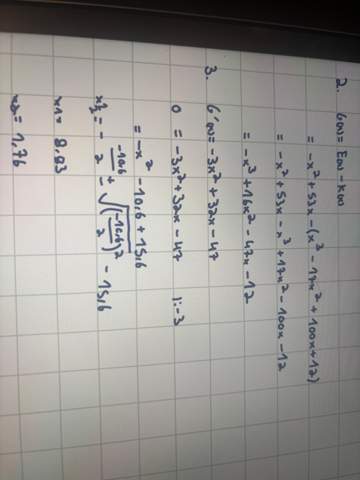 2. G(x) = E(x) - K(x)
= -x² + 53x - (x³ - 17x² + 100x + 12)
= -x² + 53x - x³ + 17x² - 100x - 12
= -x³ + 16x² - 47x - 12
3. G'(x) = -3x² + 32x - 47
0 = -3x² + 32x - 47 |:-3
= -x² - 10,6 + 15,6
x½ = - -10,6/2 ± √((-10,6/2)² - 15,6
x1 = 8,93
x2 = 1,76